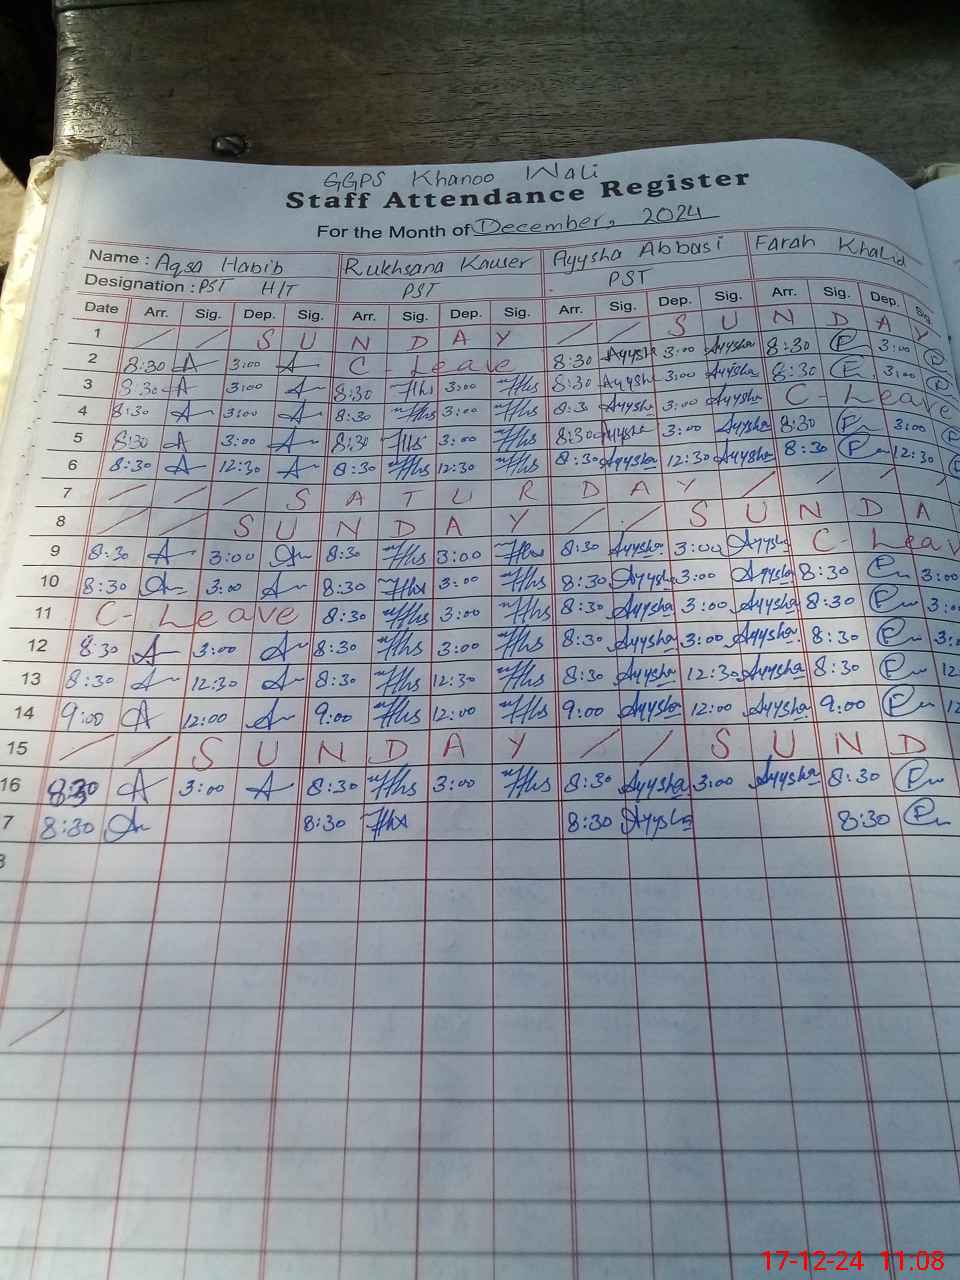 GGPS Khanoo Wali
Staff Attendance Register
For the Month of December, 2024
Name : Aqsa Habib Rukhsana Kauser Ayysha Abbasi Farah Khalid
Designation : PST H/T PST PST
Date Arr. Sig. Dep. Sig. Arr. Sig. Dep. Sig. Arr. Sig. Dep. Sig. Arr. Sig. Dep. Sig.
1 / / S U N D A Y / / S U N D A Y
2 8:30 A 3:00 A C- Leave 8:30 Ayysha 3:00 Ayysha 8:30 3:00
3 8:30 A 3:00 A 8:30 3:00 8:30 Ayysha 3:00 Ayysha 8:30 3:00
4 8:30 A 3:00 A 8:30 3:00 8:30 Ayysha 3:00 Ayysha C- Leave
5 8:30 A 3:00 A 8:30 3:00 8:30 Ayysha 3:00 Ayysha 8:30 3:00
6 8:30 A 12:30 A 8:30 12:30 8:30 Ayysha 12:30 Ayysha 8:30 12:30
7 / / / S A T U R D A Y / / /
8 / / S U N D A Y / / S U N D A
9 8:30 A 3:00 A 8:30 3:00 8:30 Ayysha 3:00 Ayysha C- Leav
10 8:30 A 3:00 A 8:30 3:00 8:30 Ayysha 3:00 Ayysha 8:30 3:00
11 C- Leave 8:30 3:00 8:30 Ayysha 3:00 Ayysha 8:30 3:0
12 8:30 A 3:00 A 8:30 3:00 8:30 Ayysha 3:00 Ayysha 8:30 3:
13 8:30 A 12:30 A 8:30 12:30 8:30 Ayysha 12:30 Ayysha 8:30 12
14 9:00 A 12:00 A 9:00 12:00 9:00 Ayysha 12:00 Ayysha 9:00 12
15 / / S U N D A Y / / S U N D
16 8:30 A 3:00 A 8:30 3:00 8:30 Ayysha 3:00 Ayysha 8:30
7 8:30 A 8:30 8:30 Ayysha 8:30
17-12-24 11:08